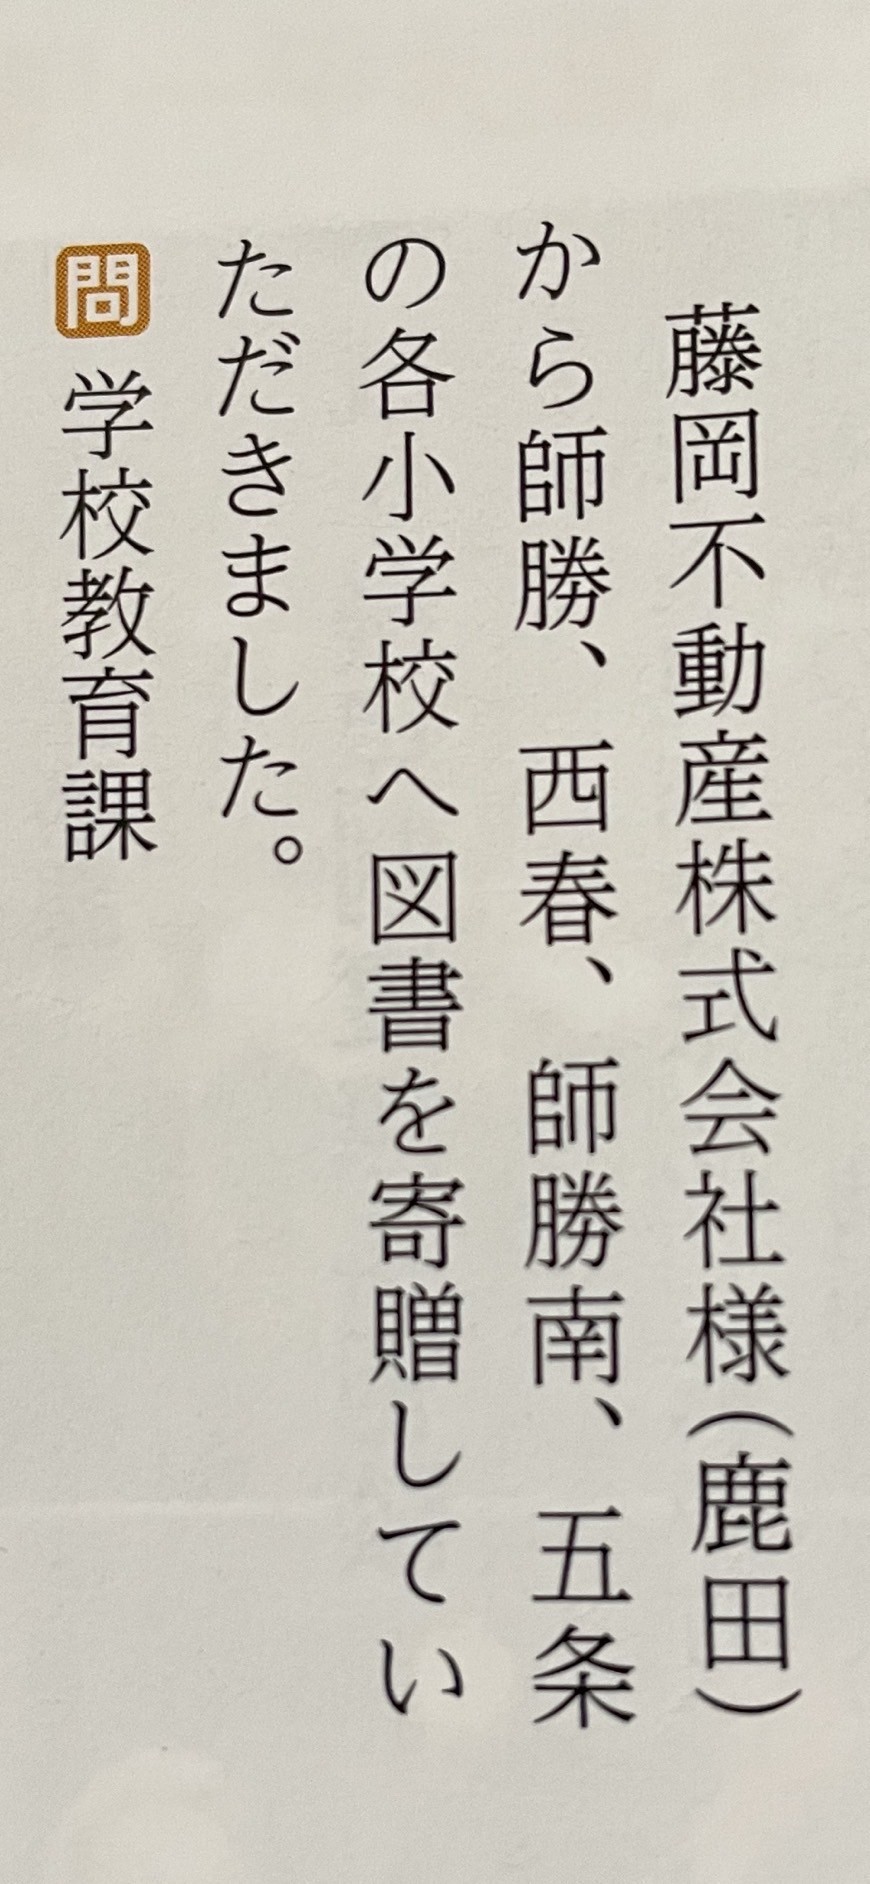 藤岡不動産株式会社様（鹿田）
から師勝、西春、師勝南、五条
の各小学校へ図書を寄贈してい
ただきました。
問 学校教育課